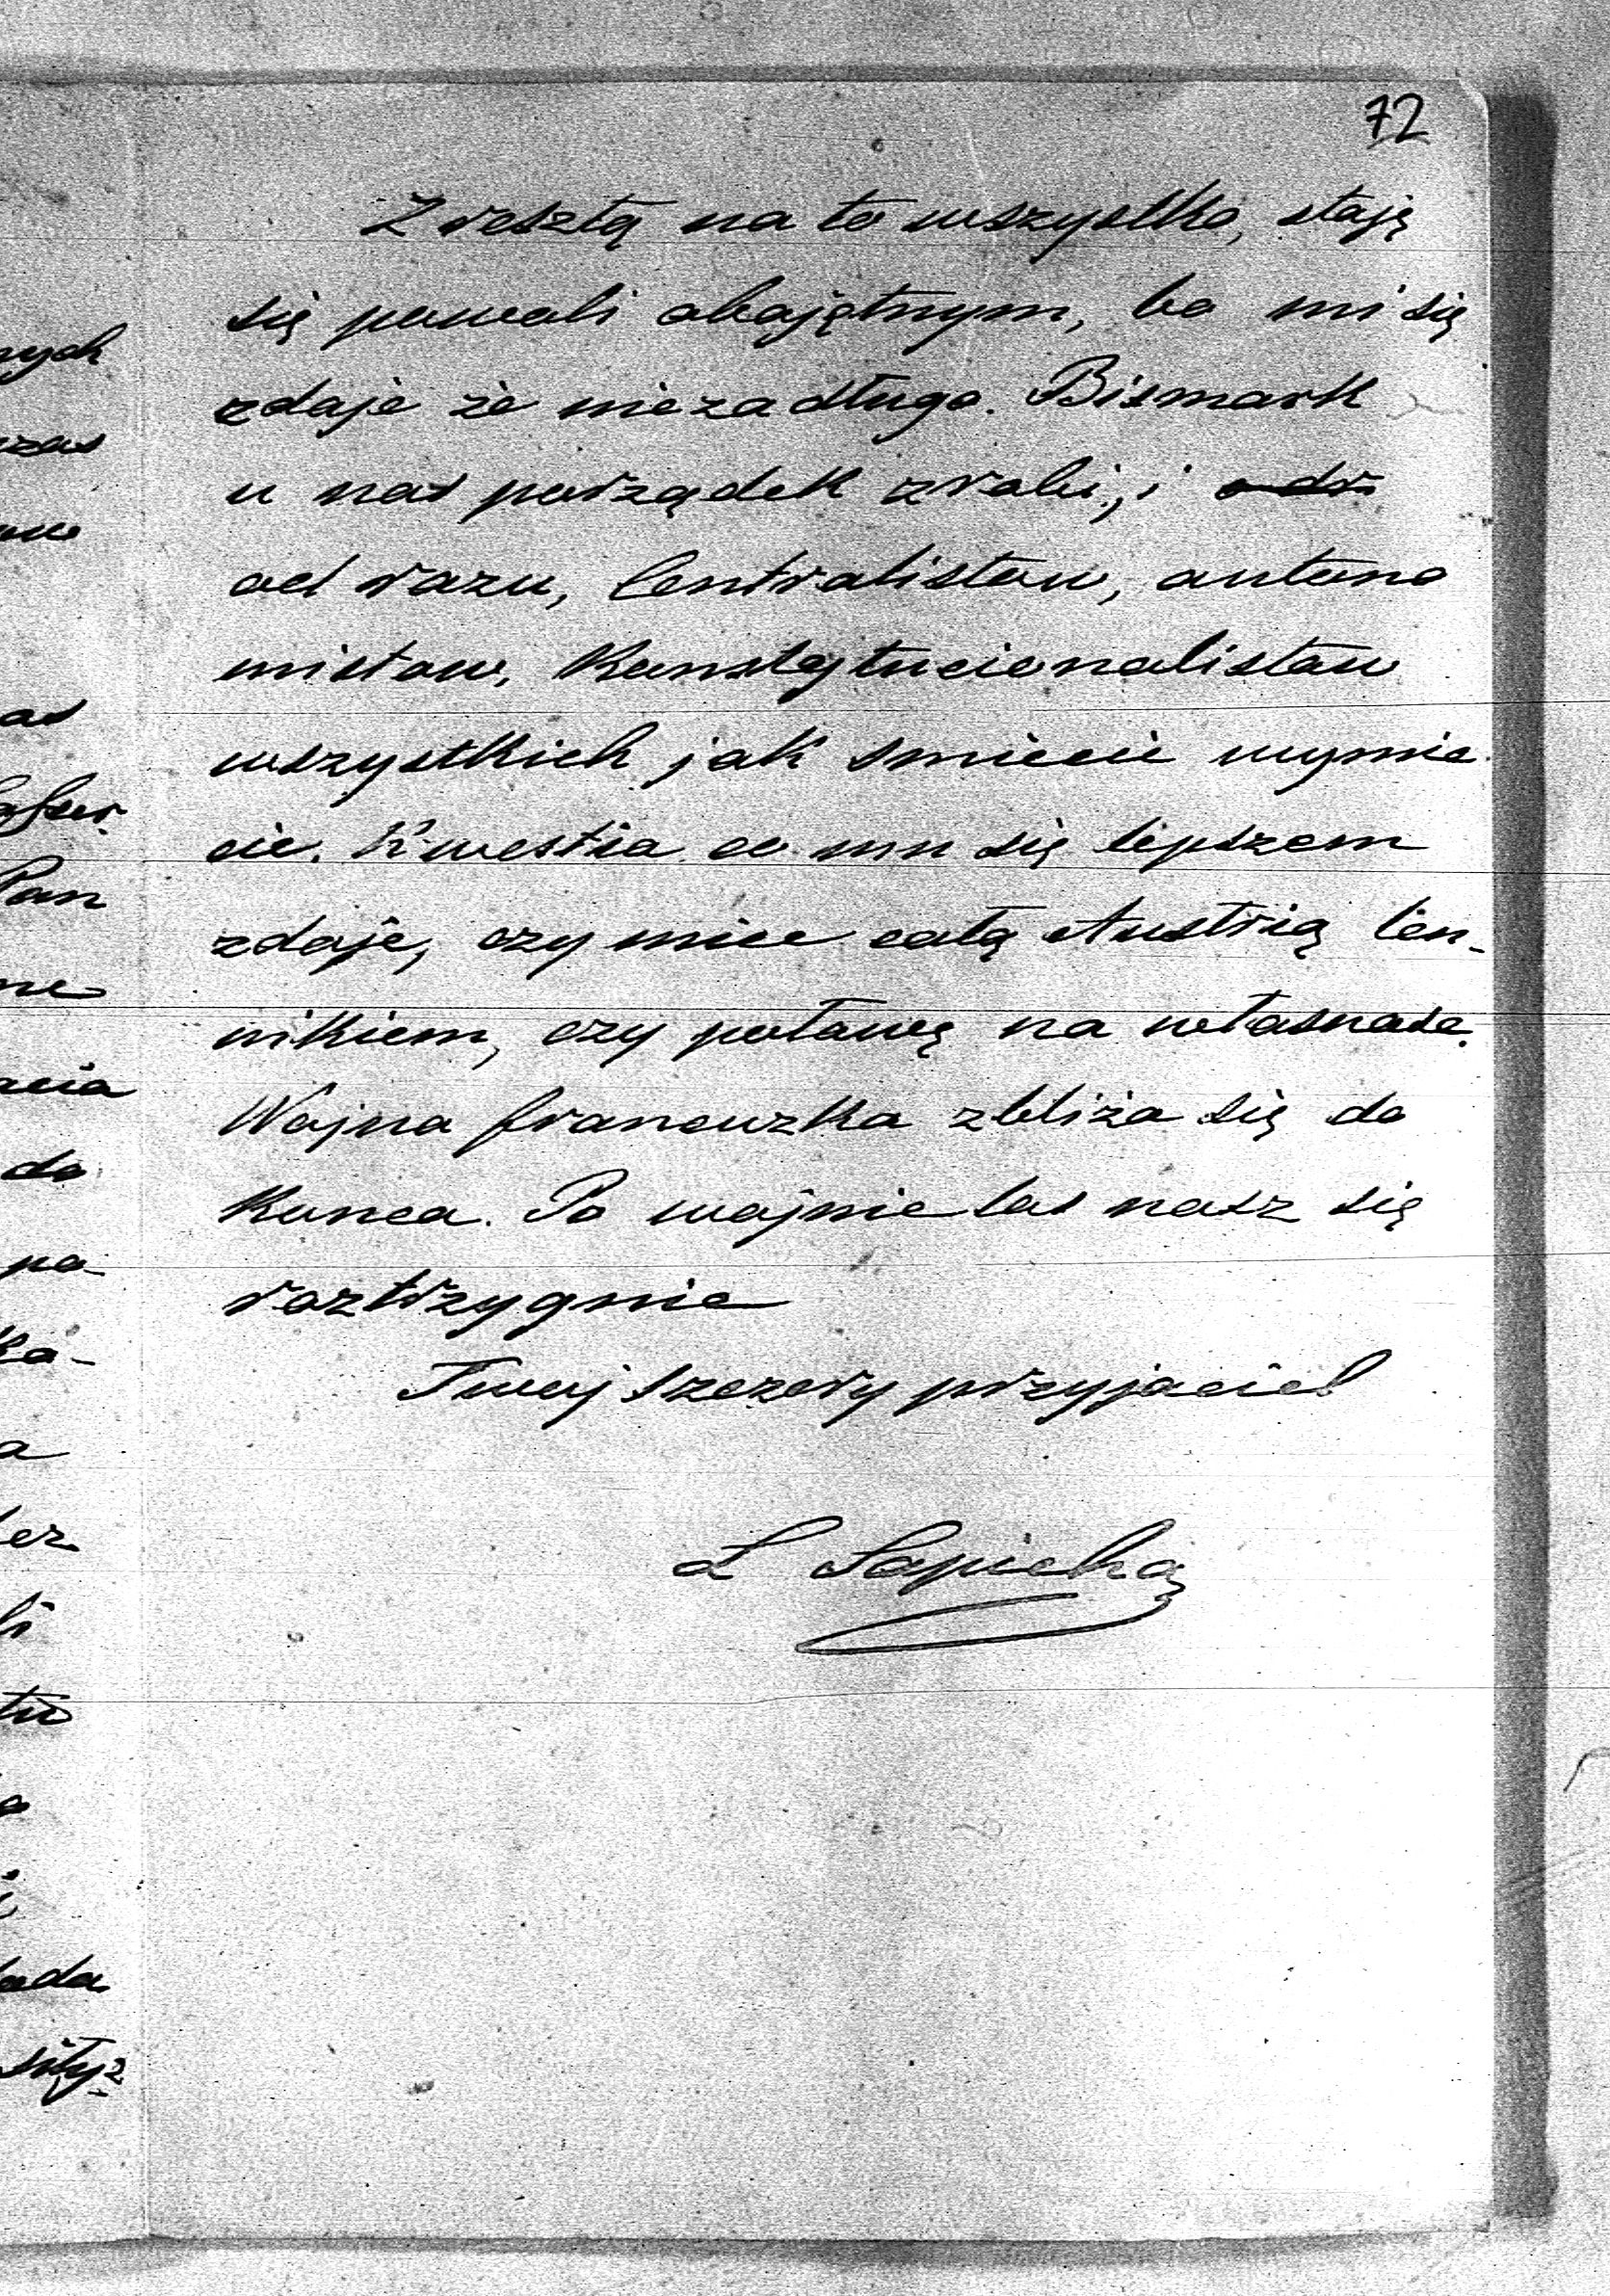 72
Zresztą na to wszystko, stają
się pomału obojętnym, bo mi się
zdaje że niezadługo. Bismark
u nas porządek zrobi, i
od razu, Centralistow, autono
mistow, Konstytucionalistow
wszystkich jak smiecie wymie
cie. Kwestia co mu się lepszem
zdaje, czy miec całą Austrią len-
nikiem, czy połowę na własnosc.
Wojna francuzka zbliża się do
Konca. Po wojnie los nasz się
roztrzygnie
Twoj szczery przyjaciel
L Sapieha
nych
czas
Pan
do
po-